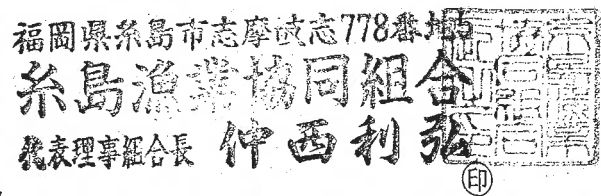 福岡県糸島市志摩岐志778番地5
糸島漁業協同組合
代表理事組合長 仲西利弘
印